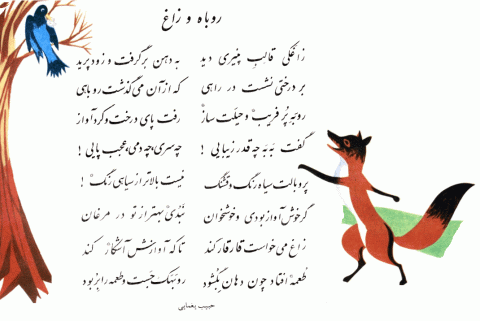 روباه و زاغ
زاغکی قالب پنیری دید به دهن برگرفت و زود پرید
بر درختی نشست در راهی که از آن می گذشت روباهی
روبه پُر فریب و حیلت ساز رفت پای درخت و کرد آواز
گفت به به چه قدر زیبایی ! چه سری، چه دمی، عجب پایی !
پر و بالت سیاه رنگ و قشنگ نیست بالاتر از سیاهی رنگ !
گر خوش آواز بودی و خوشخوان نبُدی بهتر از تو در مرغان
زاغ می خواست قار قار کند تا که آوازش آشکار کند
طُعمه افتاد چون دهان بگشود روبهک جَست و طعمه را بربود
حبیب یغمایی